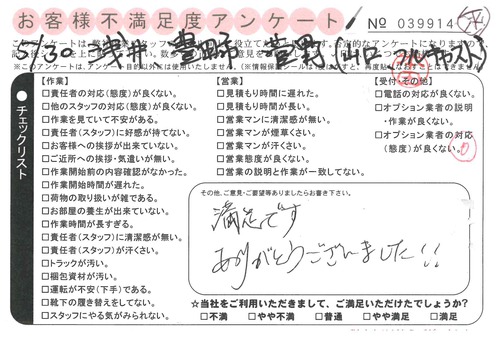 お客様不満足度アンケート
№ 039914
5/30 浅井 豊田市 菅野 山口
※このアンケートは、アンケート目的以外では使用いたしません。
チェックリスト
【作業】
□責任者の対応(態度)が良くない。
□他のスタッフの対応(態度)が良くない。
□作業を見ていて不安がある。
□責任者(スタッフ)に好感が持てない。
□お客様への挨拶が出来ていない。
□ご近所への挨拶・気遣いが無い。
□作業開始前の内容確認がなかった。
□作業開始時間が遅れた。
□荷物の取り扱いが雑である。
□お部屋の養生が出来ていない。
□作業時間が長すぎる。
□責任者(スタッフ)に清潔感が無い。
□責任者(スタッフ)が汗くさい。
□トラックが汚い。
□梱包資材が汚い。
□運転が不安(下手)である。
□靴下の履き替えをしてない。
□スタッフにやる気がみられない。
【営業】
□見積もり時間に遅れた。
□見積もり時間が長い。
□営業マンに清潔感が無い。
□営業マンが煙草くさい。
□営業マンが汗くさい。
□営業態度が良くない。
□営業の説明と作業が一致してない。
【受付・その他】
□電話の対応が良くない。
□オプション業者の説明
・作業が良くない。
□オプション業者の対応
(態度)が良くない。
その他、ご意見・ご要望等ありましたらお書き下さい。
満足です
ありがとうございました!!
☆当社をご利用いただきまして、ご満足いただけたでしょうか?
□不満 □やや不満 □普通 □やや満足 □満足